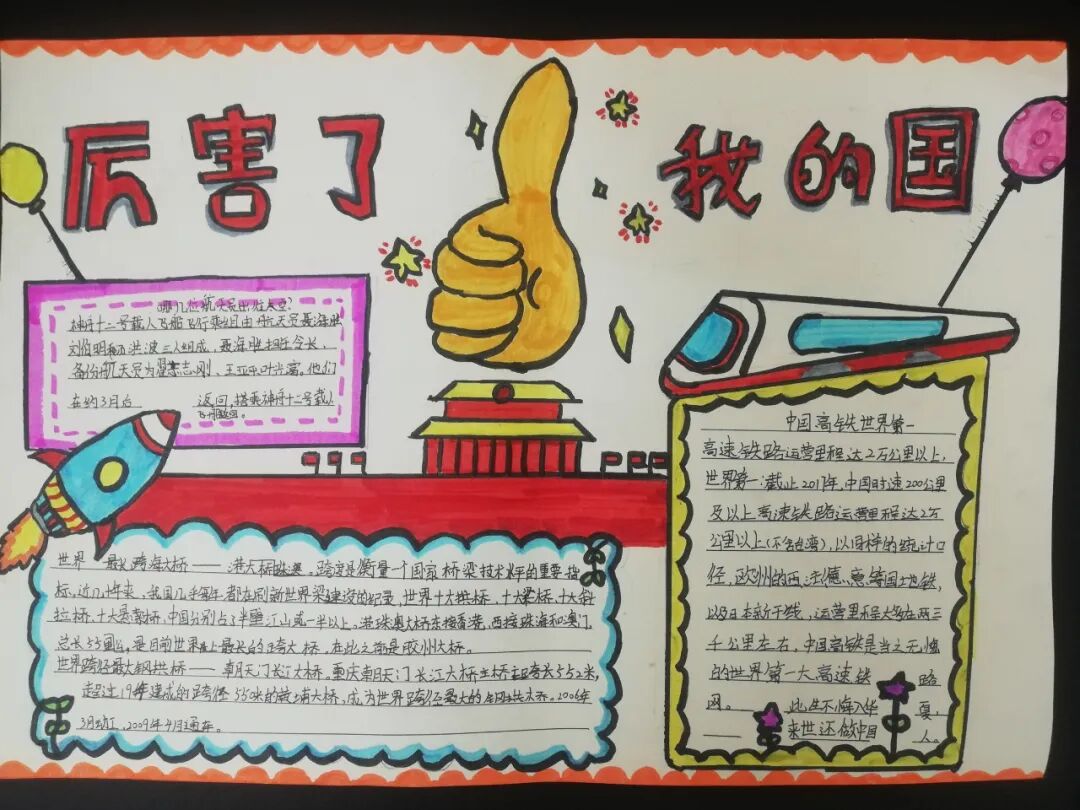 厉害了
我的国
哪几位航天员出征太空？
神舟十二号载人飞船飞行乘组由航天员聂海胜
刘伯明和洪波三人组成，聂海胜担任令长，
备份航天员为翟志刚、王亚平叶光富。他们
在约3月后 返回，搭乘神舟十二号载人
世界 最长跨海大桥——港大桥珠澳。跨度是衡量一个国家桥梁技术水平的重要指
标，近几十年来，我国几乎每年都在刷新世界梁建设的纪录，世界十大拱桥、十大梁桥、十大斜
拉桥、十大悬索桥，中国分别占了半壁江山或一半以上。港珠澳大桥东接香港，西接珠海和澳门，
总长55公里，是目前世界上最长的跨大桥，在此之前是胶州大桥。
世界跨径最大钢拱桥——朝天门长江大桥。重庆朝天门长江大桥主桥主跨长552米，
超过19年建成的跨径 550米的浦大桥，成为世界跨径最大的 2006年
3月动工，2009年4月通车。
中国高铁世界第一
高速铁路运营里程达2万公里以上，
世界第一：截止2017年，中国时速200公里
及以上高速铁路运营里程达2万
公里以上（不含台湾），以同样的统计口
径，欧州的西、法德、意等国土地铁，
以及日本新干线，运营里程大多在两三
千公里左右，中国高铁是当之无愧
的世界第一大高速铁 路
网。 此生不悔入华 夏，
来世还做中国 人。